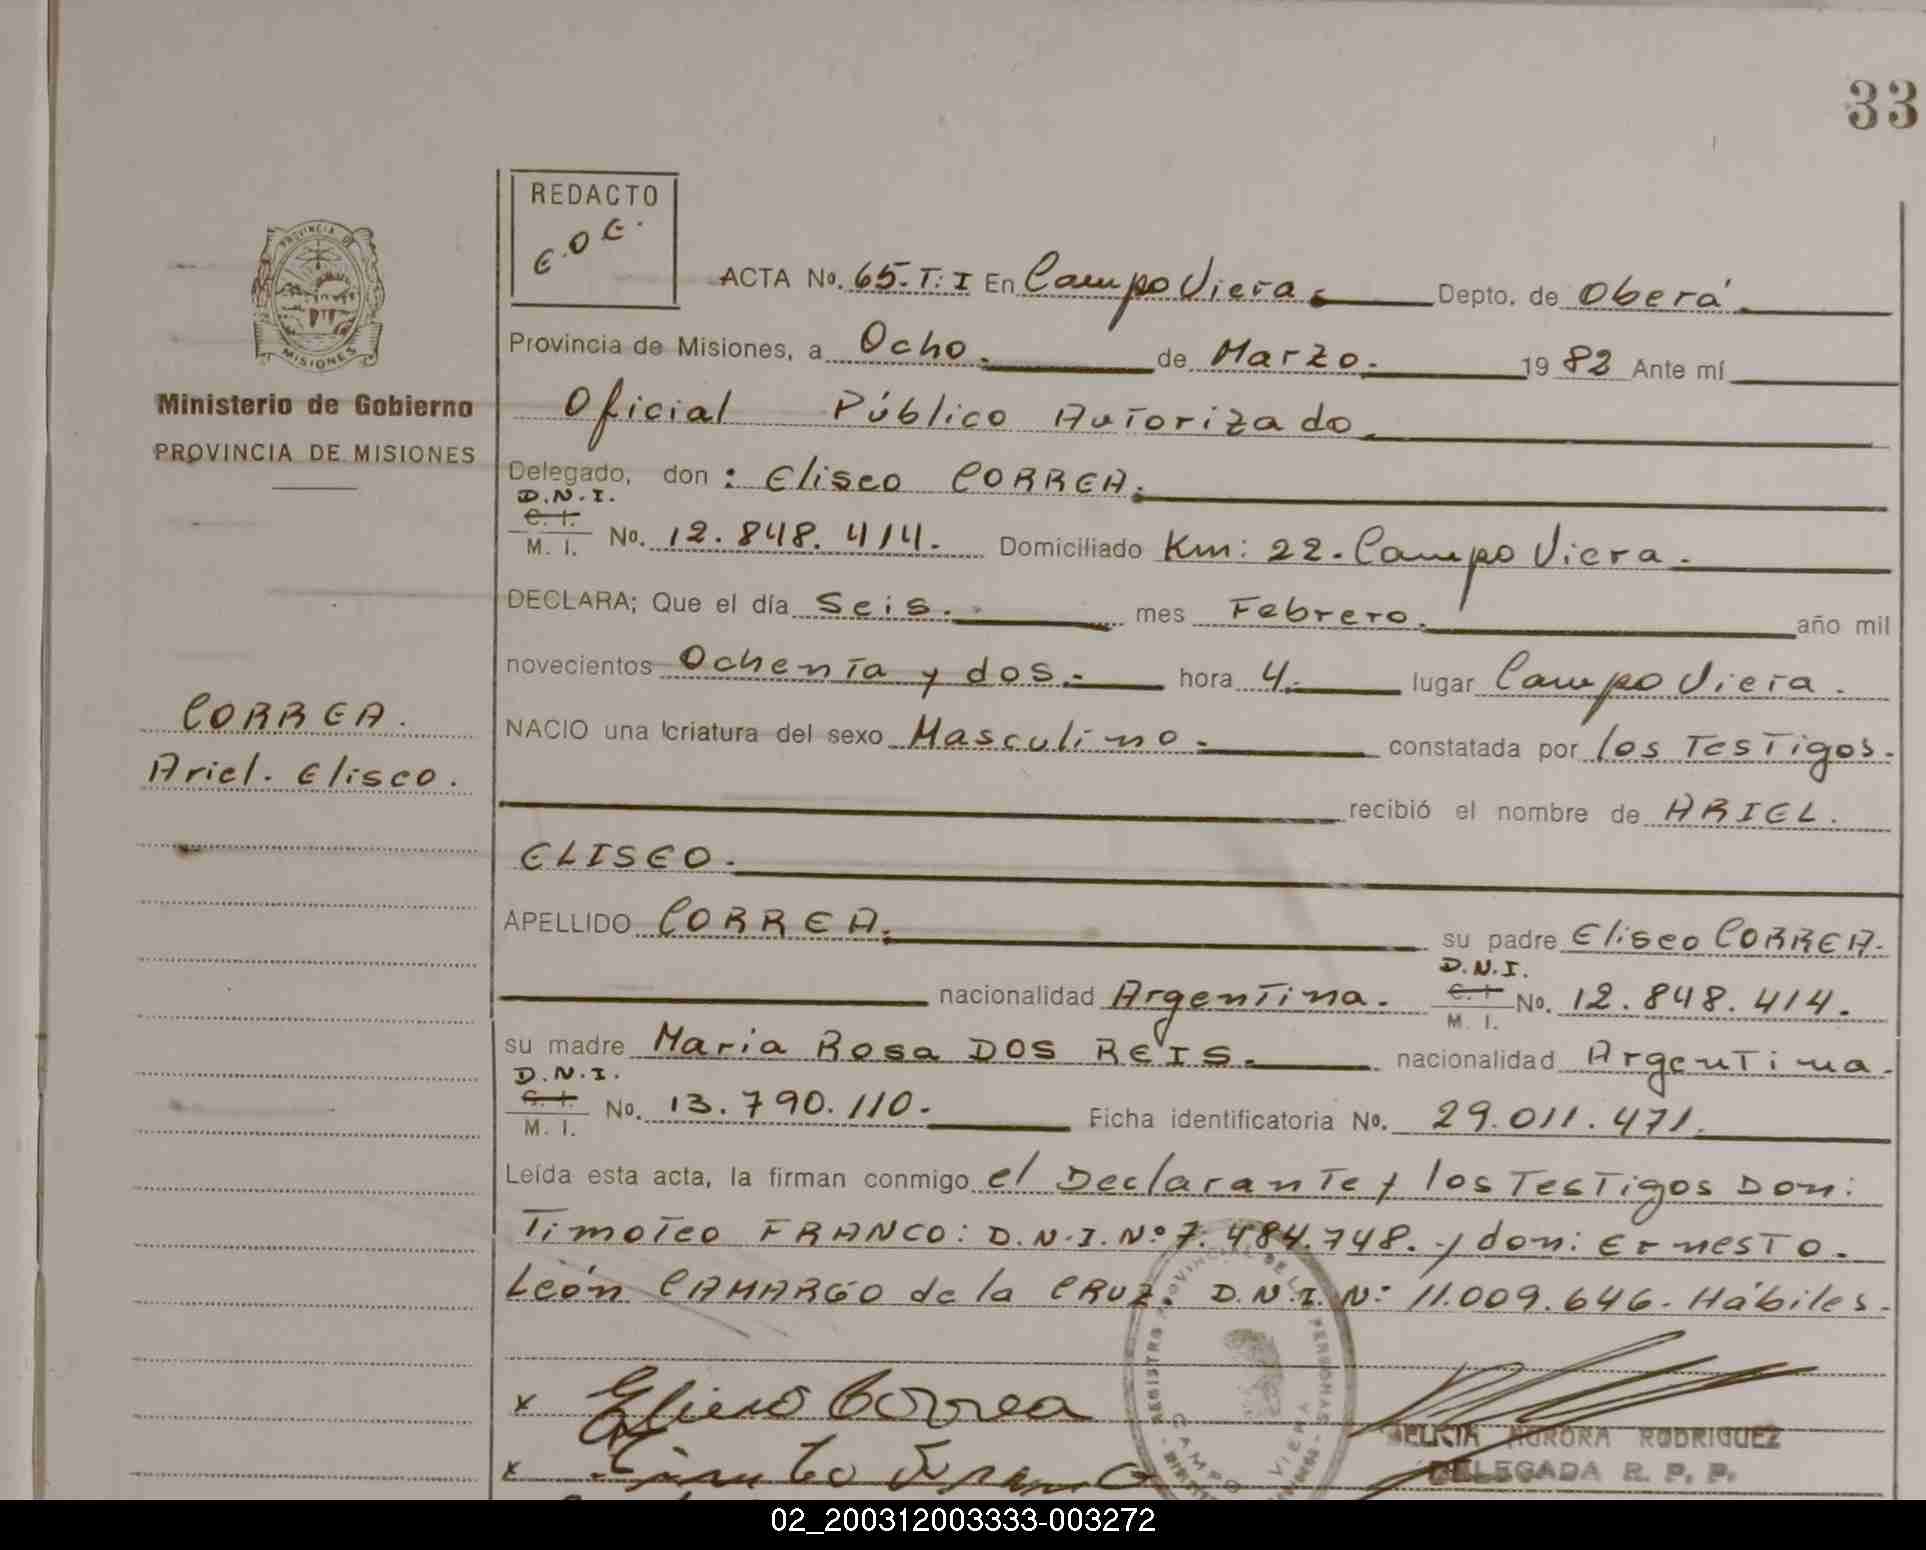 33
REDACTO
E.O.E.
PROVINCIA DE
MISIONES
Ministerio de Gobierno
PROVINCIA DE MISIONES
CORREA.
Ariel. Eliseo.
ACTA No. 65.T:I En Campo Viera. Depto. de Oberá
Provincia de Misiones, a Ocho. de Marzo. 19 82 Ante mí
Oficial Público Autorizado.
Delegado, don: Eliseo CORREA.
D.N.I.
C. I.
M. I. No. 12.848.414. Domiciliado Km: 22. Campo Viera.
DECLARA; Que el día Seis. mes Febrero. año mil
novecientos Ochenta y dos.- hora 4.- lugar Campo Viera.
NACIO una criatura del sexo Masculino.- constatada por los Testigos.
recibió el nombre de ARIEL.
ELISEO.
APELLIDO CORREA. su padre Eliseo CORREA.
nacionalidad Argentina. D.N.I. C. I. M. I. No. 12.848.414.
su madre Maria Rosa DOS REIS. nacionalidad Argentina.
D.N.I.
C. I.
M. I. No. 13.790.110. Ficha identificatoria No. 29.011.471.
Leída esta acta, la firman conmigo el Declarante y los Testigos Don:
Timoteo FRANCO: D.N.I.Nº 7.484.748. y don: Ernesto.
León CAMARGO de la CRUZ. D.N.I. Nº 11.009.646. Hábiles.
x Eliseo Correa
x
REGISTRO PROVINCIAL DE LAS PERSONAS
CAMPO VIERA
AURORA RODRIGUEZ
DELEGADA R. P. P.
02_200312003333-003272